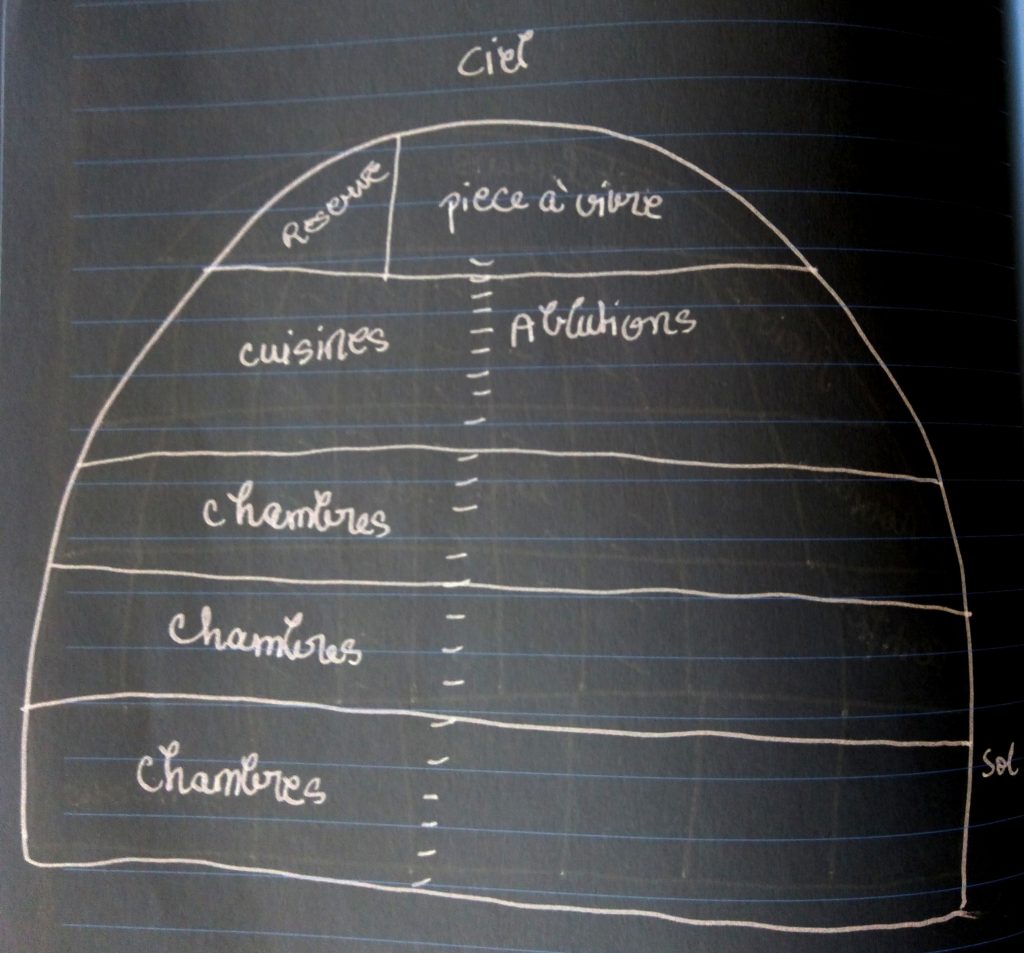 Ciel
Reserve
pièce à vivre
cuisines
Ablutions
chambres
chambres
chambres
Sol